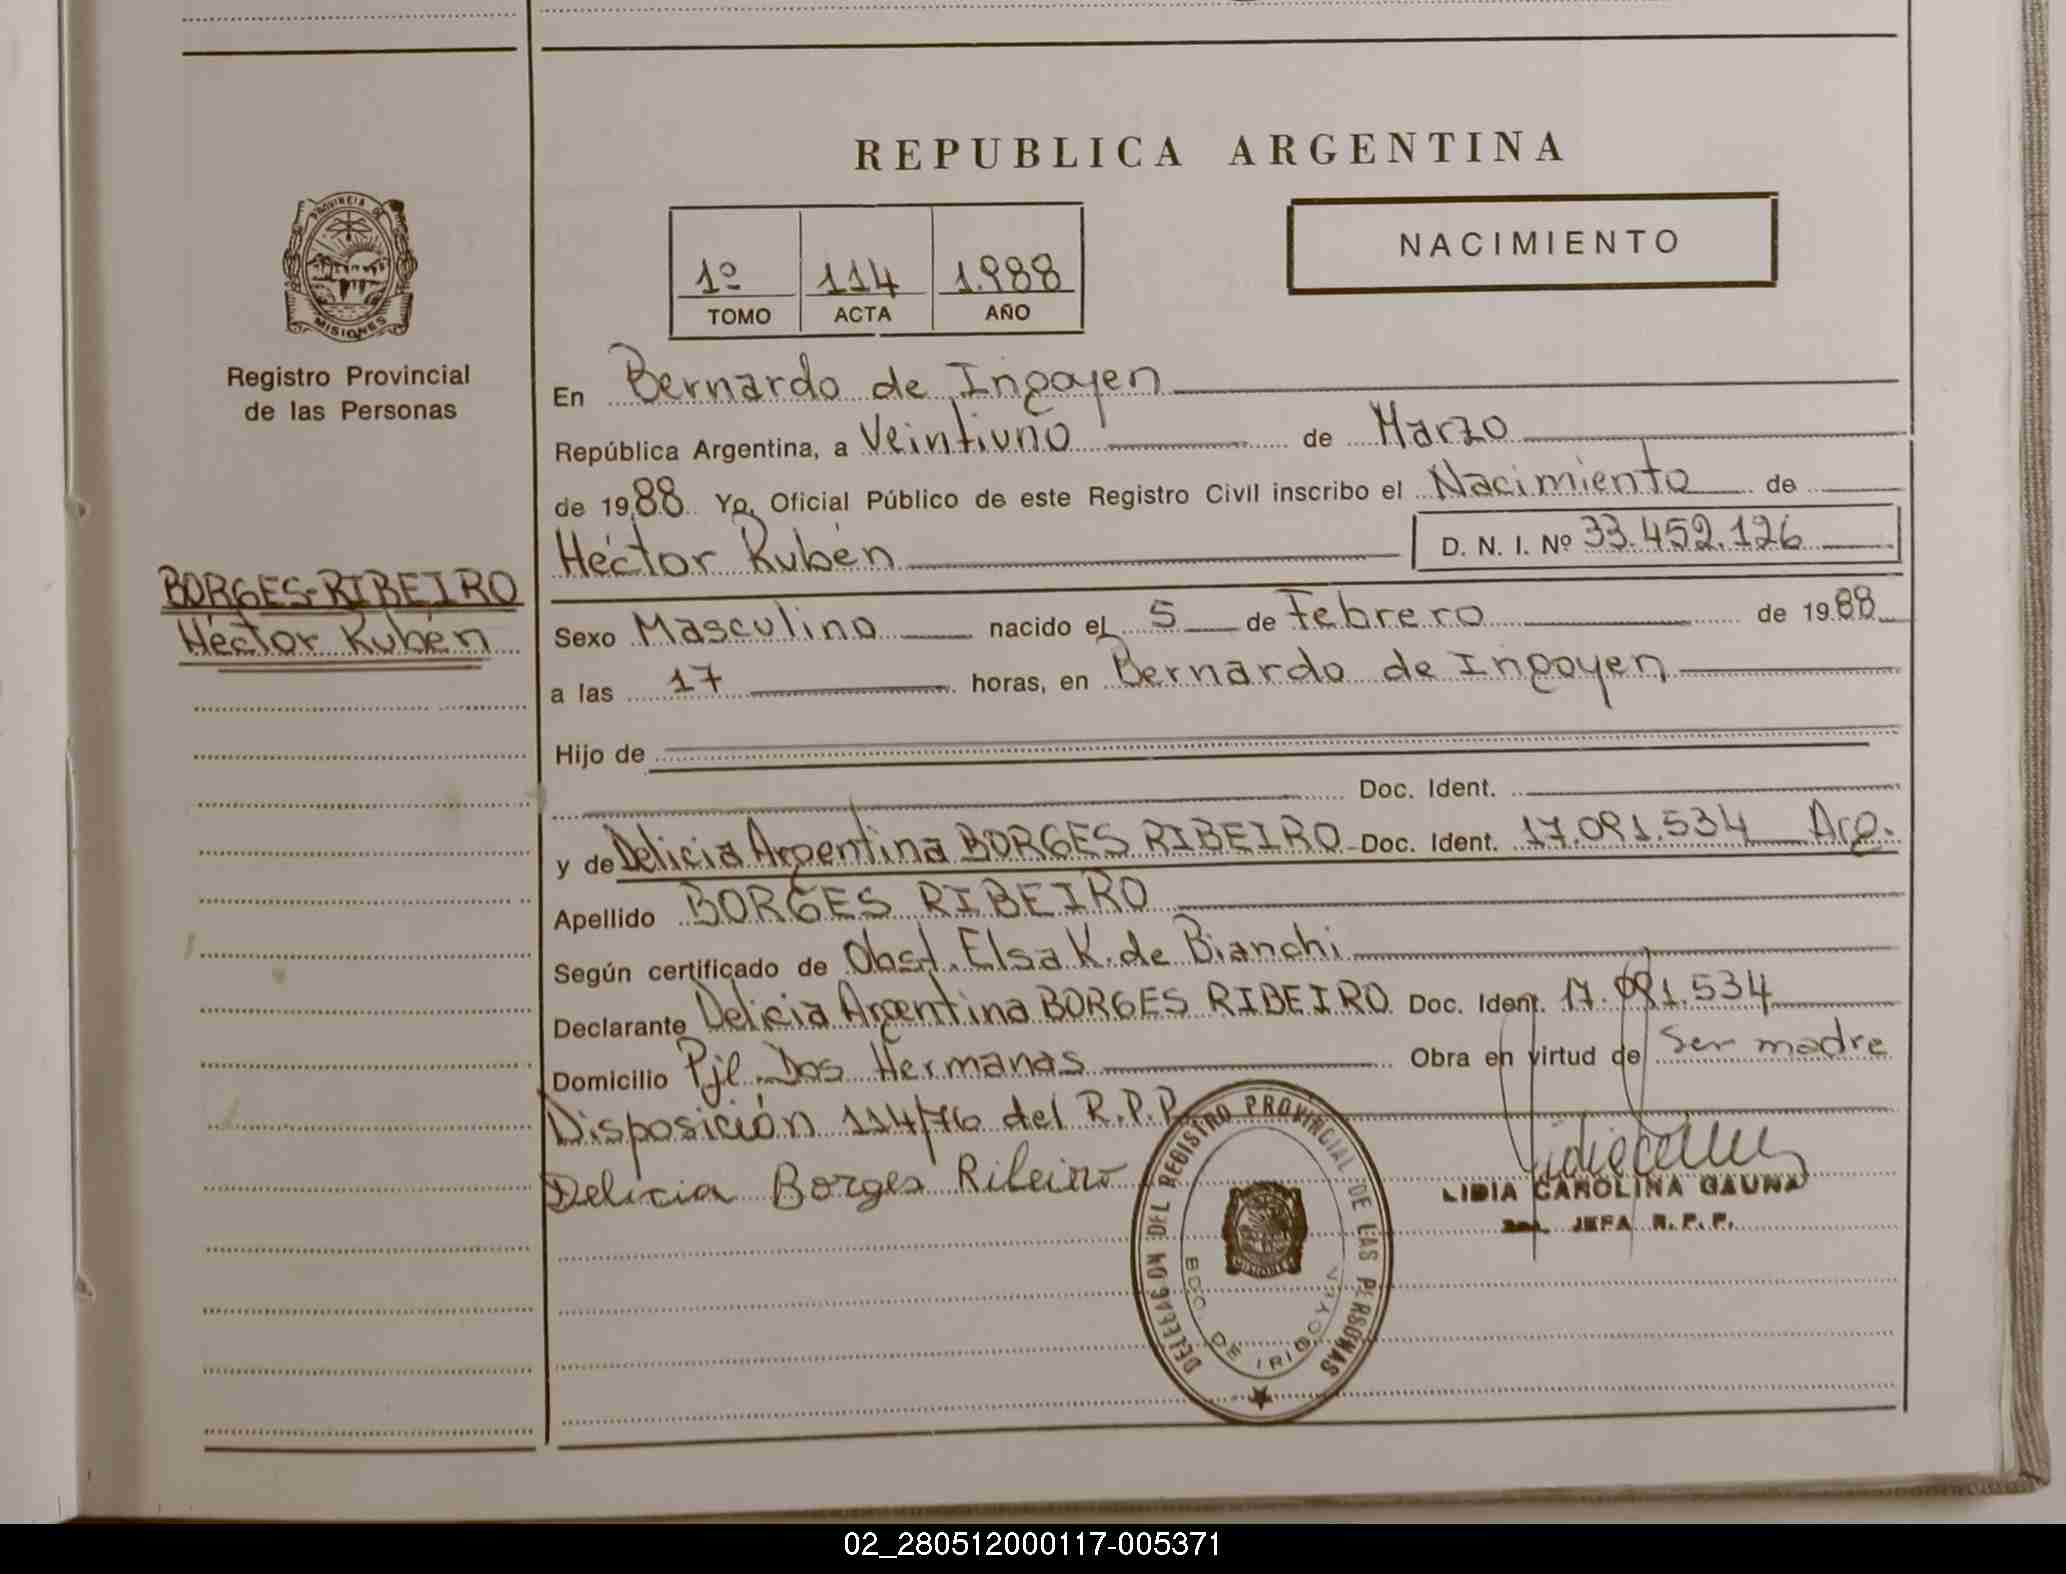 REPUBLICA ARGENTINA
PROVINCIA DE
MISIONES
Registro Provincial
de las Personas
1º 114 1.988
TOMO ACTA AÑO
NACIMIENTO
En Bernardo de Irigoyen
República Argentina, a Veintiuno de Marzo
de 1988 Yo, Oficial Público de este Registro Civil inscribo el Nacimiento de
Héctor Rubén D. N. I. Nº 33.452.126
BORGES-RIBEIRO
Héctor Rubén
Sexo Masculino nacido el 5 de Febrero de 1988
a las 17 horas, en Bernardo de Irigoyen
Hijo de
Doc. Ident.
y de Delicia Argentina BORGES RIBEIRO Doc. Ident. 17.091.534 Arg.
Apellido BORGES RIBEIRO
Según certificado de Obst. Elsa K. de Bianchi
Declarante Delicia Argentina BORGES RIBEIRO Doc. Ident. 17.091.534
Domicilio Pjl. Dos Hermanas Obra en virtud de Ser madre
Disposición 114/76 del R.P.P.
Delicia Borges Ribeiro
DELEGACION DEL REGISTRO PROVINCIAL DE LAS PERSONAS
BDO DE IRIGOYEN
MISIONES
LIDIA CAROLINA GAUNA
JEFA R.P.P.
02_280512000117-005371